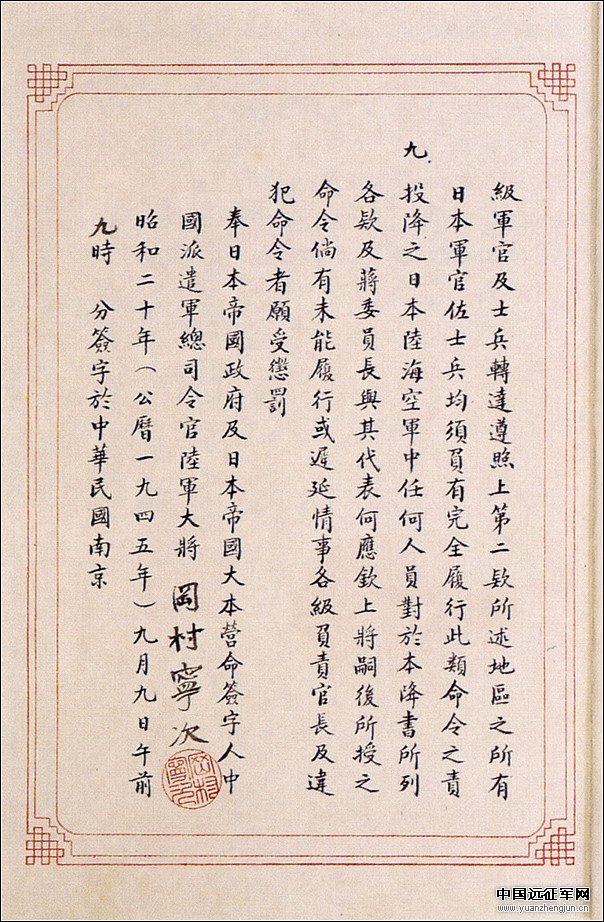 級軍官及士兵轉達遵照上第二欵所述地區之所有
日本軍官佐士兵均須負有完全履行此類命令之責
九.投降之日本陸海空軍中任何人員對於本降書所列
各欵及蔣委員長與其代表何應欽上將嗣後所授之
命令倘有未能履行或遲延情事各級負責官長及違
犯命令者願受懲罰
奉日本帝國政府及日本帝國大本營命簽字人中
國派遣軍總司令官陸軍大將 岡村寧次
昭和二十年(公曆一九四五年)九月九日午前
九時 分簽字於中華民國南京
中国远征军网
www.yuanzhengjun.cn